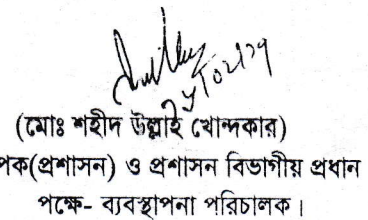 (মোঃ শহীদ উল্লাহ খোন্দকার)
পক(প্রশাসন) ও প্রশাসন বিভাগীয় প্রধান
পক্ষে- ব্যবস্থাপনা পরিচালক।